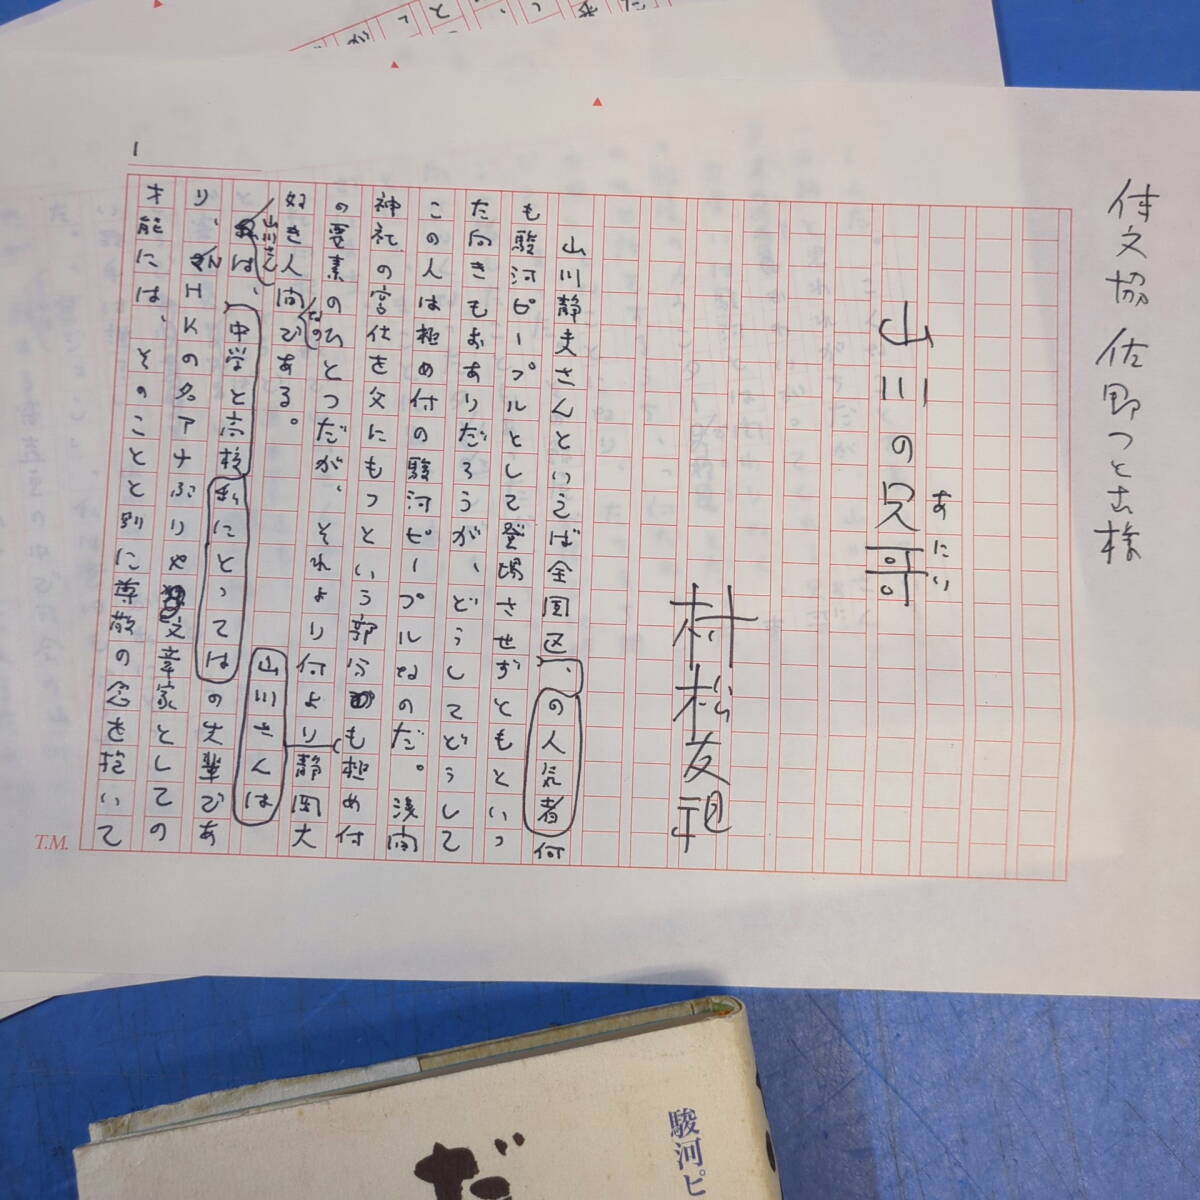 体文協 佐野つとむ様
山川の兄哥
あにい
村松友視
山川静夫さんといえば全国区、の人気者何
も駿河ピープルとして登場させずともといっ
た向きもおありだろうが、どうしてどうして
この人は極め付の駿河ピープルなのだ。浅間
神社の宮仕を父にもつという部分も極め付
の要素のひとつだが、それより何より静岡大
好き人間なのである。山川さんは
山川さんは、中学と高校私にとっては の先輩であ
り、NHKの名アナぶりや文章家としての
才能には、そのことと別に尊敬の念を抱いて
1
T.M.
駿河ピ
だ